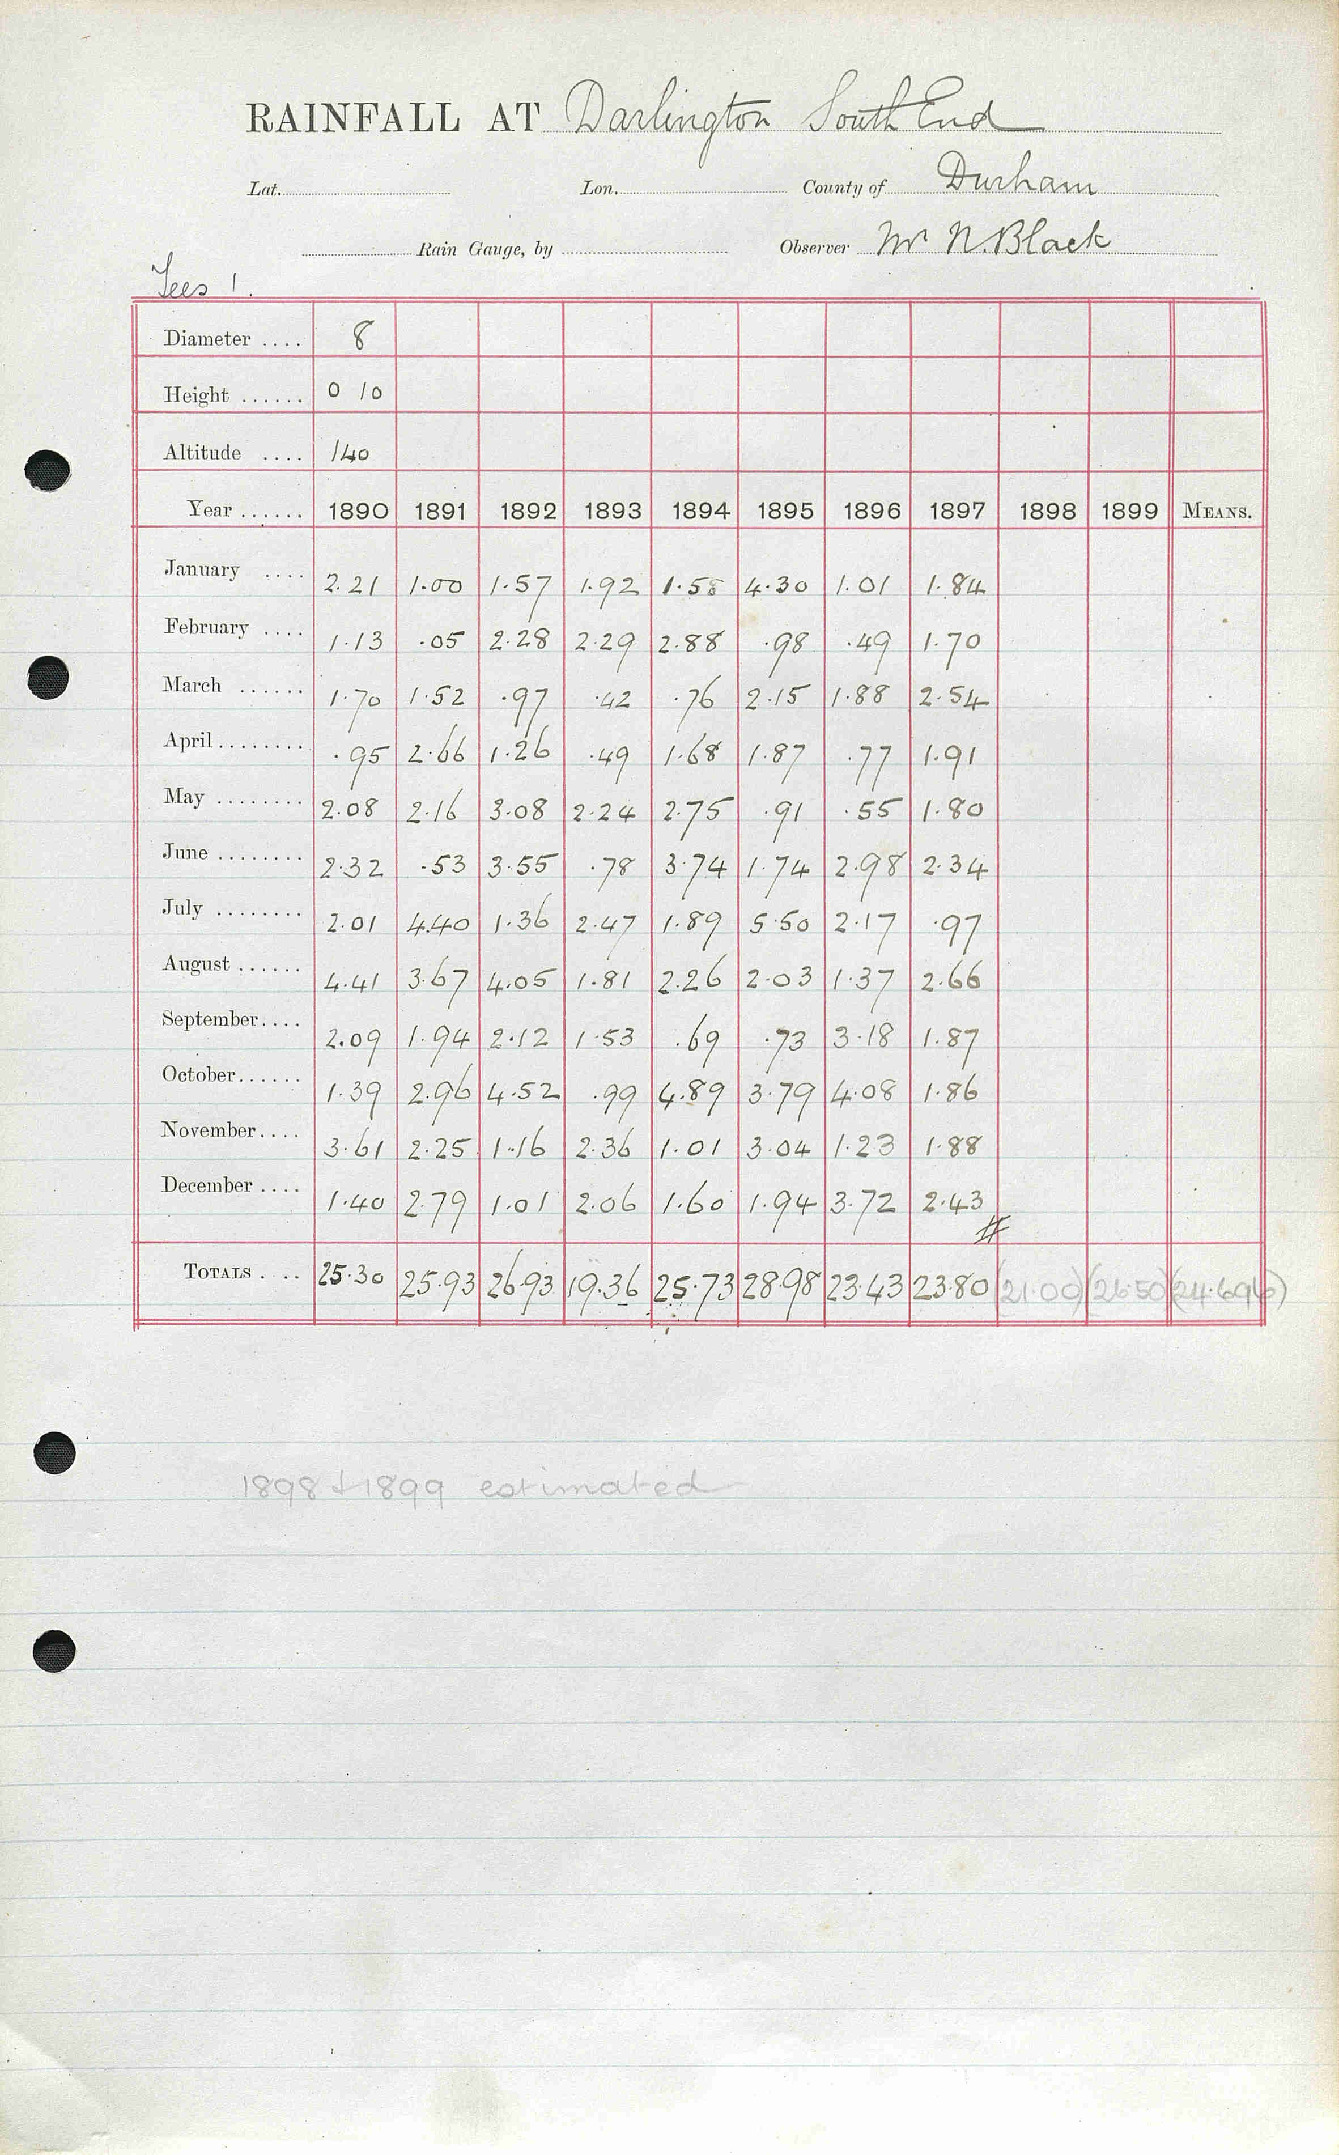 RAINFALL AT Darlington South End
Lat. Lon. County of Durham
Rain Gauge, by Observer Mr N. Black
Tees 1.
Diameter .... 8
Height ...... 0 10
Altitude .... 140
Year ...... 1890 1891 1892 1893 1894 1895 1896 1897 1898 1899 MEANS.
January .... 2.21 1.00 1.57 1.92 1.58 4.30 1.01 1.84
February .... 1.13 .05 2.28 2.29 2.88 .98 .49 1.70
March ...... 1.70 1.52 .97 .42 .76 2.15 1.88 2.54
April ........ .95 2.66 1.26 .49 1.68 1.87 .77 1.91
May ........ 2.08 2.16 3.08 2.24 2.75 .91 .55 1.80
June ........ 2.32 .53 3.55 .78 3.74 1.74 2.98 2.34
July ........ 2.01 4.40 1.36 2.47 1.89 5.50 2.17 .97
August ...... 4.41 3.67 4.05 1.81 2.26 2.03 1.37 2.66
September.... 2.09 1.94 2.12 1.53 .69 .73 3.18 1.87
October...... 1.39 2.96 4.52 .99 4.89 3.79 4.08 1.86
November.... 3.61 2.25 1.16 2.36 1.01 3.04 1.23 1.88
December .... 1.40 2.79 1.01 2.06 1.60 1.94 3.72 2.43
#
TOTALS .... 25.30 25.93 26.93 19.36 25.73 28.98 23.43 23.80 (21.00) (26.50) (24.696)
1898 + 1899 estimated